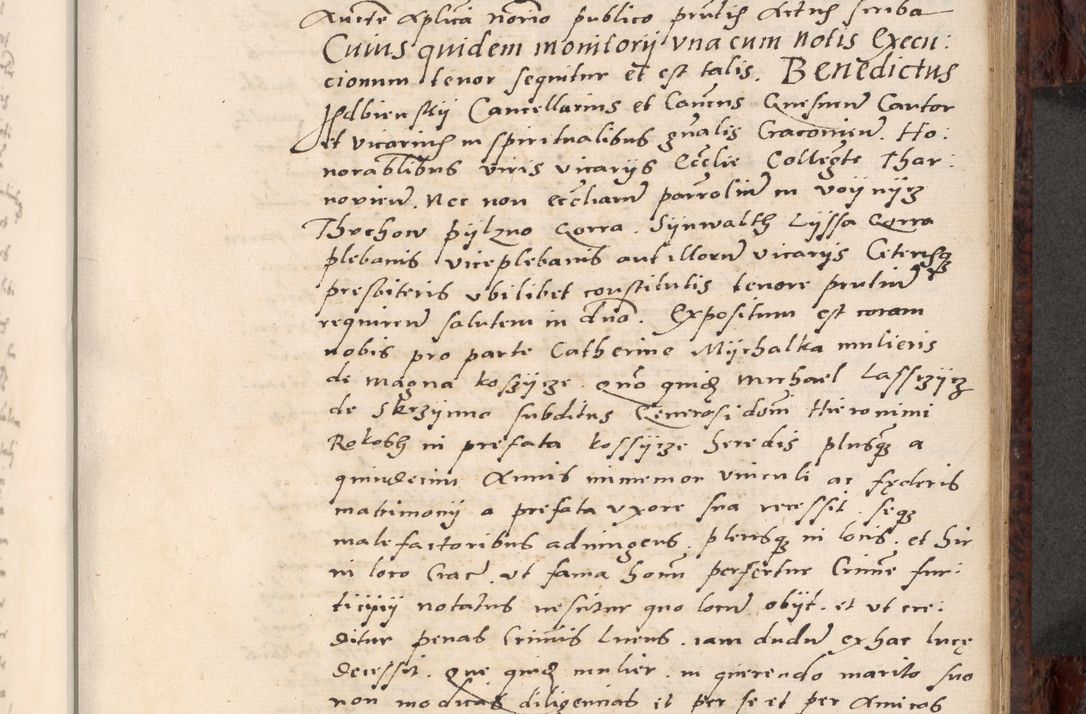 Aucte Aplica notario publico prntis Actus scriba
Cuius quidem monitorij vna cum notis Execu:
cionum tenor sequitur et est talis. Benedictus
Isdbienskij Cancellarius et Canonicus Gnesnen Cantor
et vicarius in spiritualibus gnalis Cracovien. Ho:
norabilibus viris vicarijs Ecclie Collegte Thar:
novien. Nec non eccliarum parrolium in voijnijcz
Thvchow pijlzno Gorra. Sijnwalth Lijssa Gorra
plebanis viceplebanis aut illorum vicarijs Ceterisque
presbiteris vbilibet constitutis tenore prntium
requiren salutem in dno. Expositum est coram
nobis pro parte Catherine Mijchalka mulieris
de magna koszijcze. Quo quidem Michael Lasszijcz
de Skrzijnno subditus Generosi domi Hieronimi
Rokosh in prefata kossijcze heredis plusque a
quindecim Annis immemor vinculi ac foederis
matrimonij a prefata vxore sua recessit. seque
malefactoribus adiungens. plerisque in locis. et hic
in loco Crac. vt fama hominum perfertur Crimine fur:
ticijnij notatus nescitur quo locum obijt. et vt cre:
ditur penas Criminis Luens. iam dudum ex hac luce
decessit. Que quidem mulier. in querendo marito suo
non modicas diligencias et per se et per Amicos